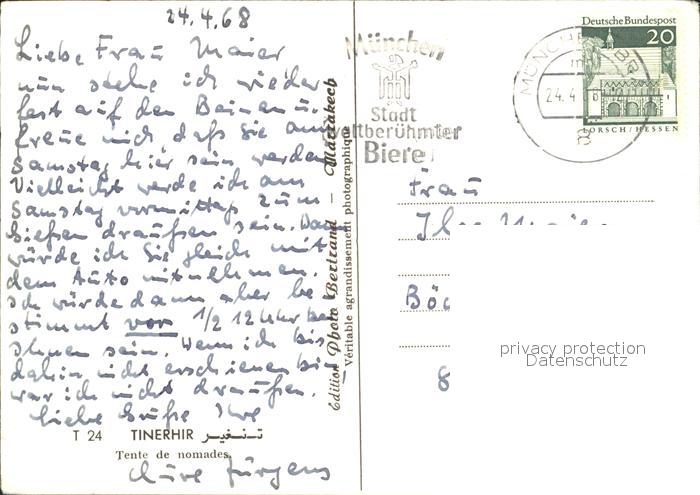 24.4.68
Liebe Frau Maier
nun stehe ich wieder
fest auf den Beinen u.
freue mich, daß Sie am
Samstag hier sein werden
Vielleicht werde ich am
Samstag vormittag zum
draußen sein. Dann
würde ich Sie gleich mit
dem Auto mitnehmen.
Ich würde dann aber be
stimmt vor 1/2 12 Uhr bei
Ihnen sein. Wenn ich bis
dahin nicht erschienen bin
war ich nicht draußen.
Liebe Grüße Ihre
Jürgens
T 24 TINERHIR تـنـغـيـر
Tente de nomades.
Edition Photo Bertrand - Marrakech
Véritable agrandissement photographique
München
Stadt
weltberühmter
Biere
MÜNCHEN
24.4
Deutsche Bundespost
20
LORSCH/HESSEN
Frau
Böc
8
privacy protection
Datenschutz